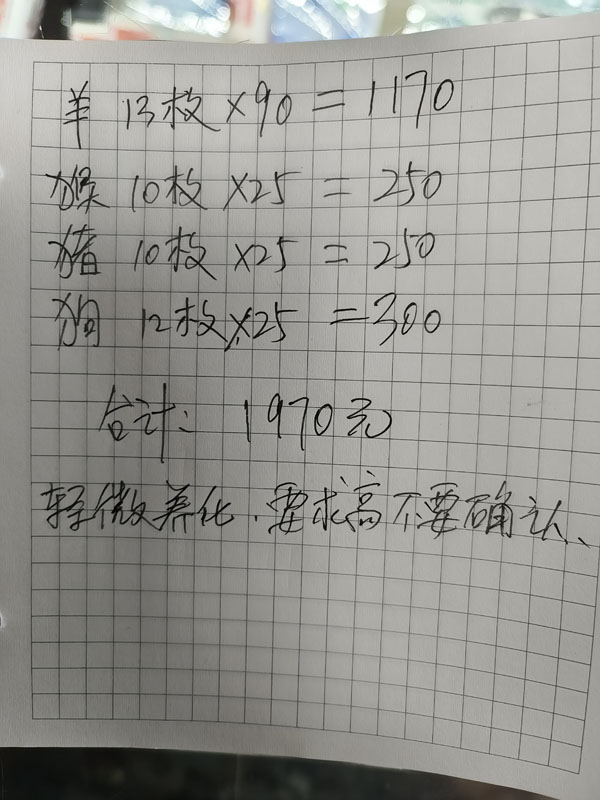 羊 13枚 ×90 = 1170
猴 10枚 ×25 = 250
猪 10枚 ×25 = 250
狗 12枚 ×25 = 300
合计: 1970元
轻微养化.要求高不要确认、